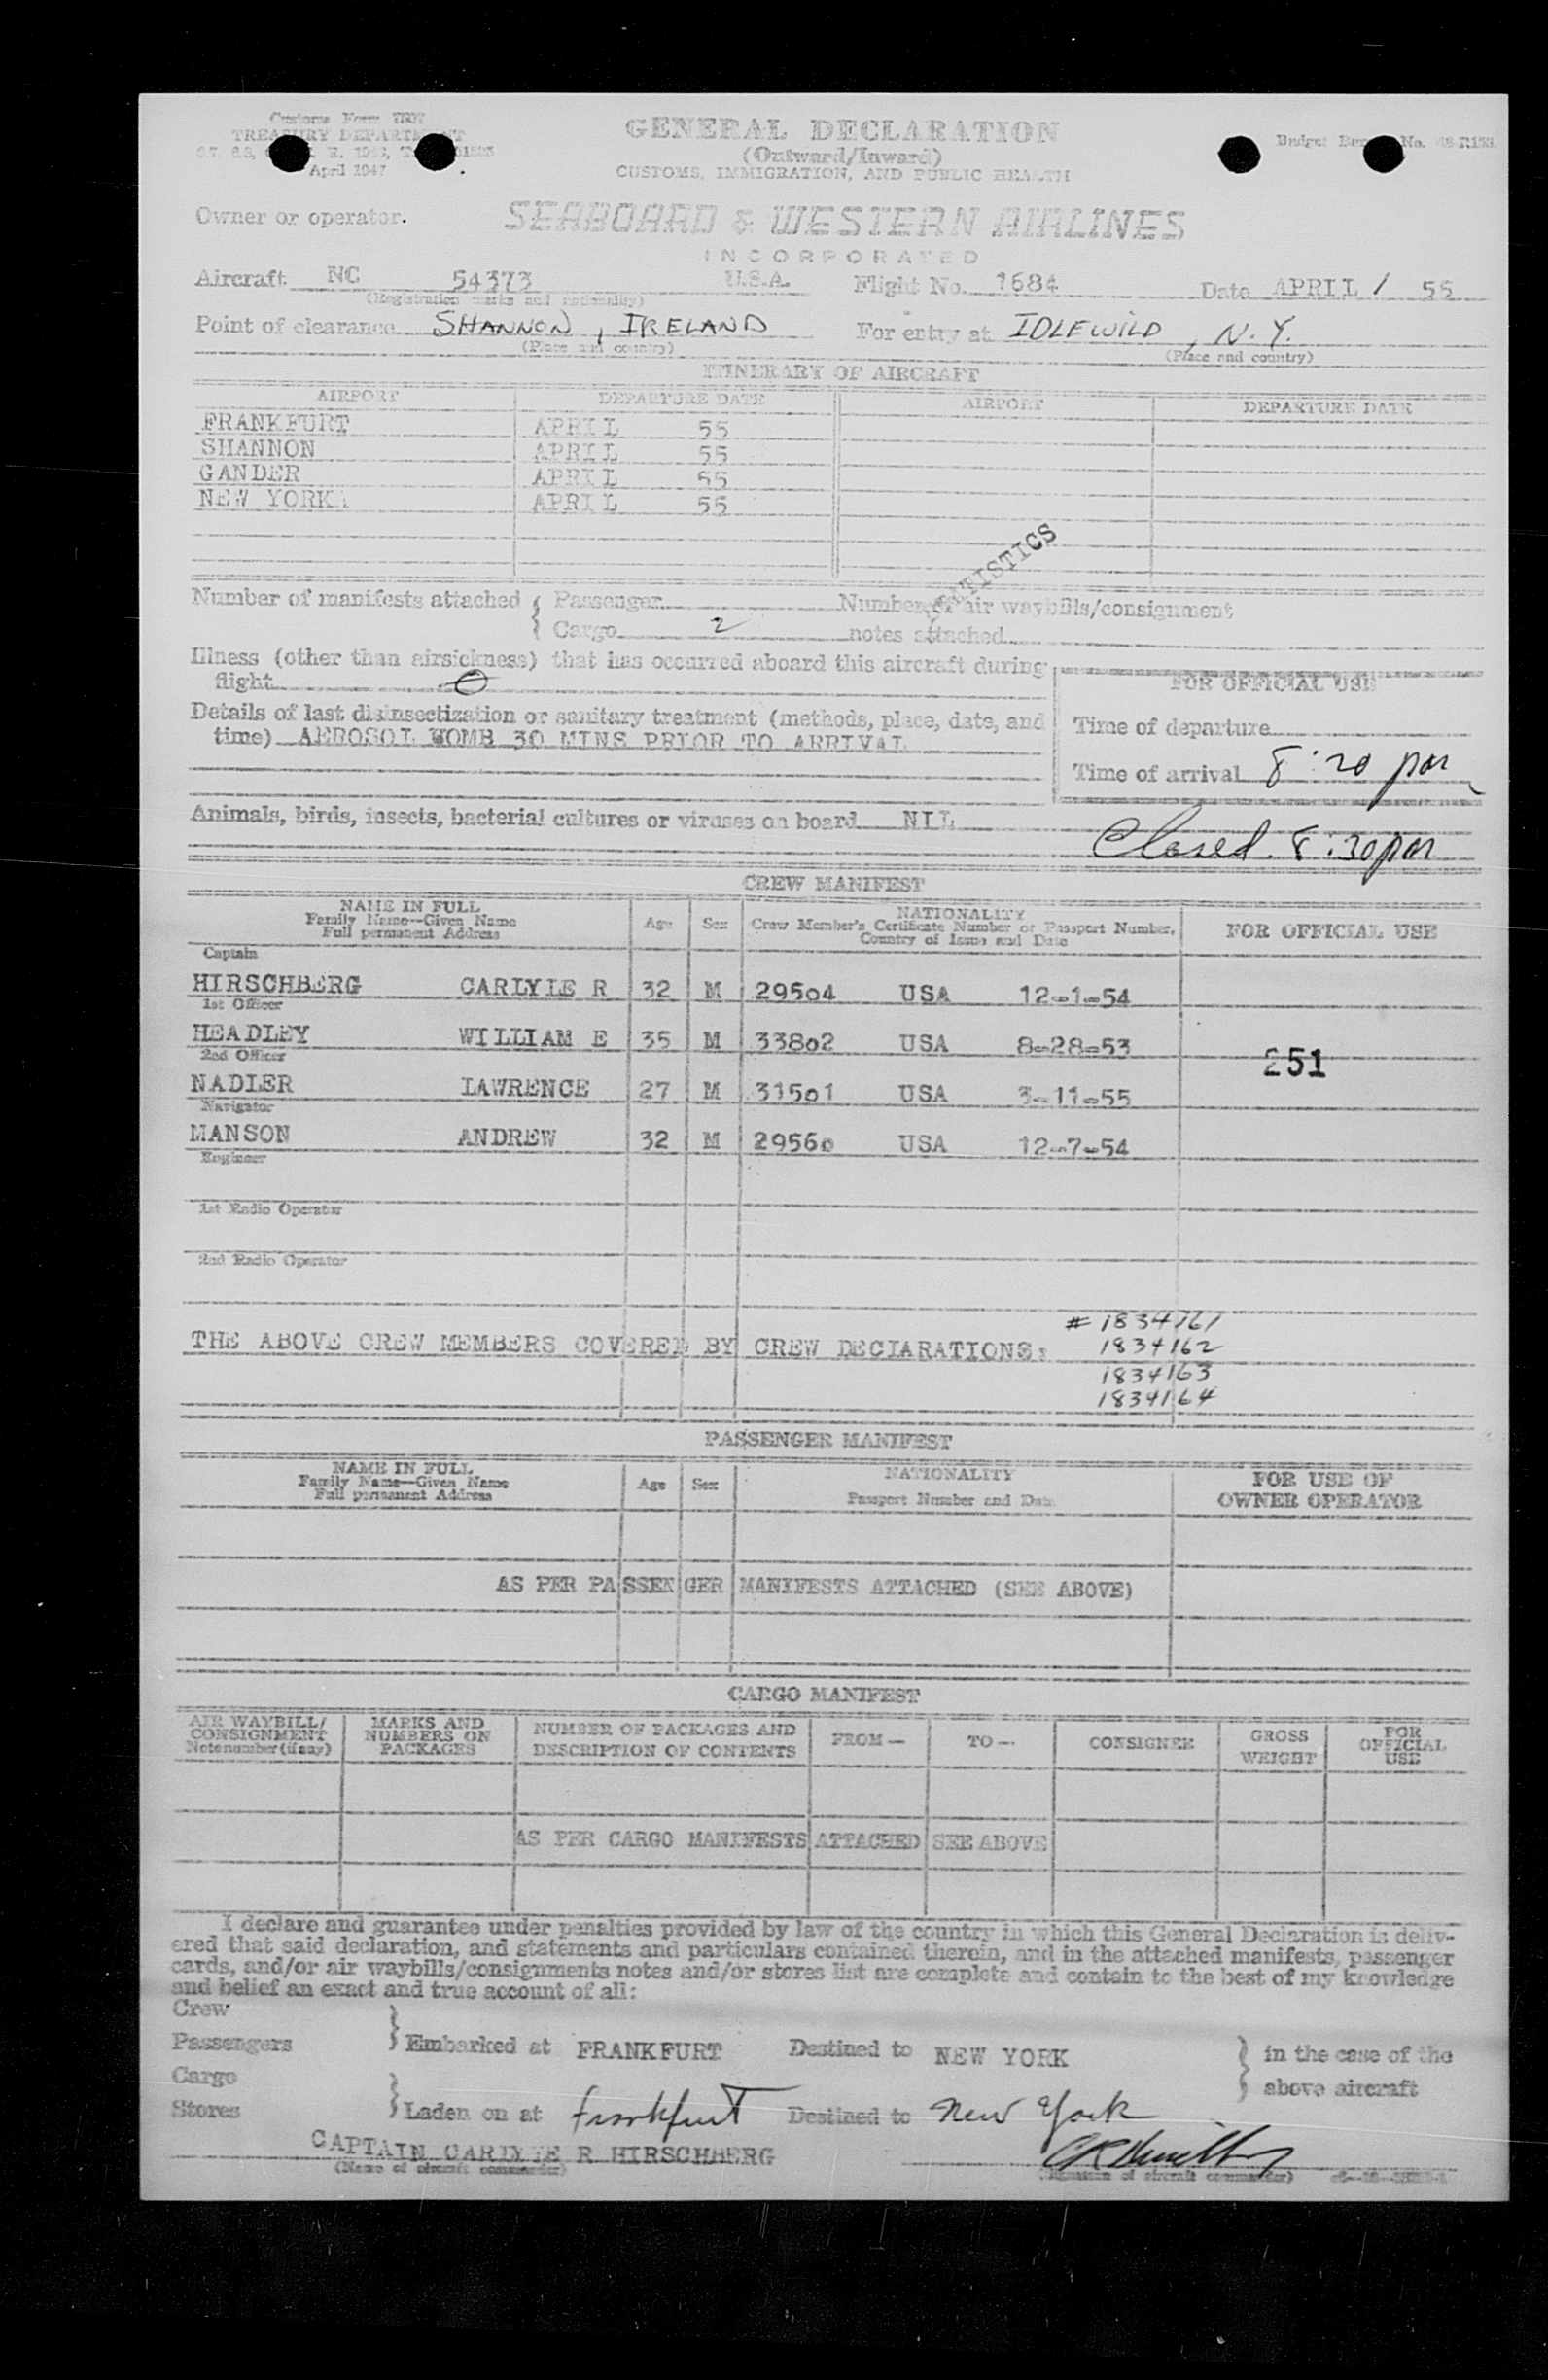 Customs Form
TREASURY DEPARTMENT
April 1947
GENERAL DECLARATION
(Outward/Inward)
CUSTOMS, IMMIGRATION, AND PUBLIC HEALTH
Budget No.
Owner or operator.
SEABOARD & WESTERN AIRLINES
INCORPORATED
Aircraft NC 54373 U.S.A. Flight No. 1684 Date APRIL 1 55
(Registration marks and nationality)
Point of clearance SHANNON, IRELAND For entry at IDLEWILD, N.Y.
(Place and country) (Place and country)
ITINERARY OF AIRCRAFT
AIRPORT DEPARTURE DATE AIRPORT DEPARTURE DATE
FRANKFURT APRIL 55
SHANNON APRIL 55
GANDER APRIL 55
NEW YORK APRIL 55
Number of manifests attached { Passenger Number of air waybills/consignment
Cargo 2 notes attached
Illness (other than airsickness) that has occurred aboard this aircraft during
flight 0
FOR OFFICIAL USE
Details of last disinsectization or sanitary treatment (methods, place, date, and
time) AEROSOL WOMB 30 MINS PRIOR TO ARRIVAL
Time of departure
Time of arrival 8:20 pm
Animals, birds, insects, bacterial cultures or viruses on board NIL
Closed 8:30 pm
CREW MANIFEST
NAME IN FULL
Family Name--Given Name
Full permanent Address
Age Sex
NATIONALITY
Crew Member's Certificate Number or Passport Number,
Country of Issue and Date
FOR OFFICIAL USE
Captain
HIRSCHBERG CARLYLE R 32 M 29504 USA 12-1-54
1st Officer
HEADLEY WILLIAM E 35 M 33802 USA 8-28-53
251
2nd Officer
NADLER LAWRENCE 27 M 31501 USA 3-11-55
Navigator
MANSON ANDREW 32 M 29560 USA 12-7-54
Engineer
1st Radio Operator
2nd Radio Operator
THE ABOVE CREW MEMBERS COVERED BY CREW DECLARATIONS:
# 1834161
1834162
1834163
1834164
PASSENGER MANIFEST
NAME IN FULL
Family Name--Given Name
Full permanent Address
Age Sex
NATIONALITY
Passport Number and Date
FOR USE OF
OWNER OPERATOR
AS PER PASSENGER MANIFESTS ATTACHED (SEE ABOVE)
CARGO MANIFEST
AIR WAYBILL/
CONSIGNMENT
Note number (if any)
MARKS AND
NUMBERS ON
PACKAGES
NUMBER OF PACKAGES AND
DESCRIPTION OF CONTENTS
FROM— TO— CONSIGNEE
GROSS
WEIGHT
FOR
OFFICIAL
USE
AS PER CARGO MANIFESTS ATTACHED SEE ABOVE
I declare and guarantee under penalties provided by law of the country in which this General Declaration is deliv-
ered that said declaration, and statements and particulars contained therein, and in the attached manifests, passenger
cards, and/or air waybills/consignments notes and/or stores list are complete and contain to the best of my knowledge
and belief an exact and true account of all:
Crew
Passengers } Embarked at FRANKFURT Destined to NEW YORK } in the case of the
Cargo above aircraft
Stores } Laden on at Frankfurt Destined to New York
CAPTAIN CARLYLE R HIRSCHBERG
(Name of aircraft commander) (Signature of aircraft commander)